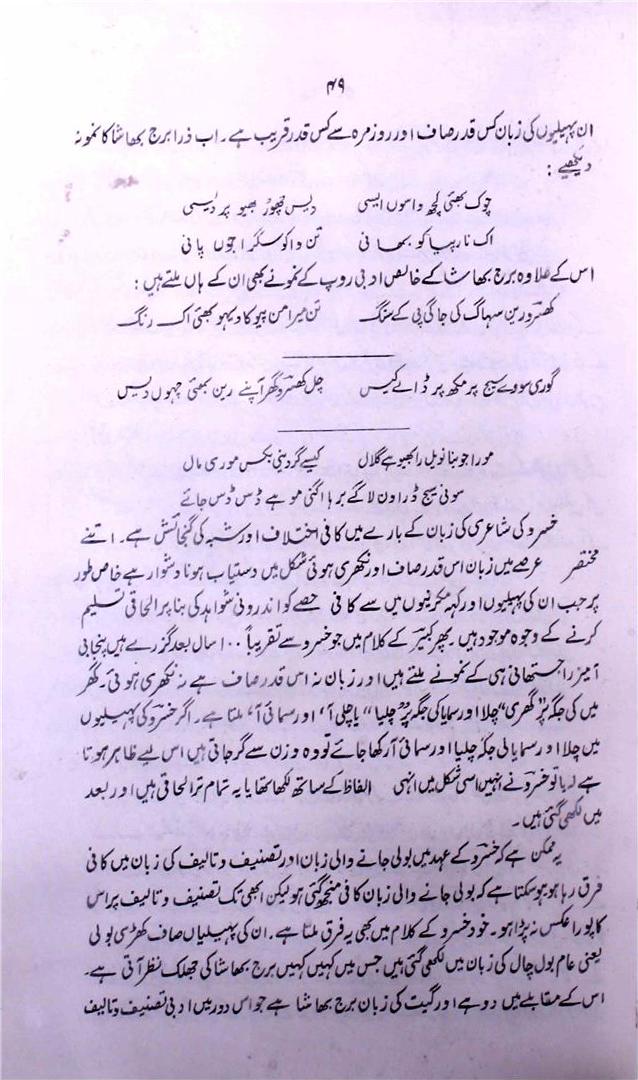 ۴۹
ان پہیلیوں کی زبان کس قدر صاف اور روزمرہ سے کس قدر قریب ہے۔ اب ذرا برج بھاشا کا نمونہ
دیکھیے :
چوک بھئی کچھ واسوں ایسی دیس چھوڑ بھیو پردیسی
اک نار پیا کو بھانی تن واکو سگرا جوں پانی
اس کے علاوہ برج بھاشا کے خالص ادبی روپ کے نمونے بھی ان کے ہاں ملتے ہیں :
کھسرو رین سہاگ کی جاگی پی کے سنگ تن میرا من پیو کا دیہو بھئی اک رنگ
گوری سووے سیج پر مکھ پر ڈالے کیس چل کھسرو گھر آپنے رین بھئی چہوں دیس
مورا جوبنا نویل رابھیو ہے گلال کیسے گر دینی بکس موری مال
سونی سیج ڈراون لاگے برہا اگنی موہے ڈس ڈس جائے
خسرو کی شاعری کی زبان کے بارے میں کافی اختلاف اور شبہ کی گنجائش ہے۔ اتنے
مختصر عرصے میں زبان اس قدر صاف اور نکھری ہوئی شکل میں دستیاب ہونا دشوار ہے خاص طور
پر جب ان کی پہیلیوں اور کہہ مکرنیوں میں سے کافی حصے کو اندرونی شواہد کی بنا پر الحاقی تسلیم
کرنے کے وجوہ موجود ہیں۔ پھر کبیر کے کلام میں جو خسرو سے تقریباً ۱۰۰ سال بعد گزرے ہیں پنجابی
آمیز راجستھانی ہی کے نمونے ملتے ہیں اور زبان نہ اس قدر صاف ہے نہ نکھری ہوئی۔ گھر
میں کی جگہ "گھری" چلا اور سمایا کی جگہ "چلیا" یا "چلی آ" اور سمائی آ ملتا ہے۔ اگر خسرو کی پہیلیوں
میں چلا اور سمایا کی جگہ چلیا اور سمائی آ رکھا جائے تو وہ وزن سے گر جاتی ہیں اس لیے ظاہر ہوتا
ہے کہ یا تو خسرو نے انہیں اسی شکل میں انہی الفاظ کے ساتھ لکھا تھا یا یہ تمام تر الحاقی ہیں اور بعد
میں لکھی گئی ہیں۔
یہ ممکن ہے کہ خسرو کے عہد میں بولی جانے والی زبان اور تصنیف و تالیف کی زبان میں کافی
فرق رہا ہو ہو سکتا ہے کہ بولی جانے والی زبان کافی منجھ گئی ہو لیکن ابھی تک تصنیف و تالیف پر اس
کا پورا عکس نہ پڑا ہو۔ خود خسرو کے کلام میں بھی یہ فرق ملتا ہے۔ ان کی پہیلیاں صاف کھڑی بولی
یعنی عام بول چال کی زبان میں لکھی گئی ہیں جس میں کہیں کہیں برج بھاشا کی جھلک نظر آتی ہے۔
اس کے مقابلے میں دوہے اور گیت کی زبان برج بھاشا ہے جو اس دور میں ادبی تصنیف و تالیف